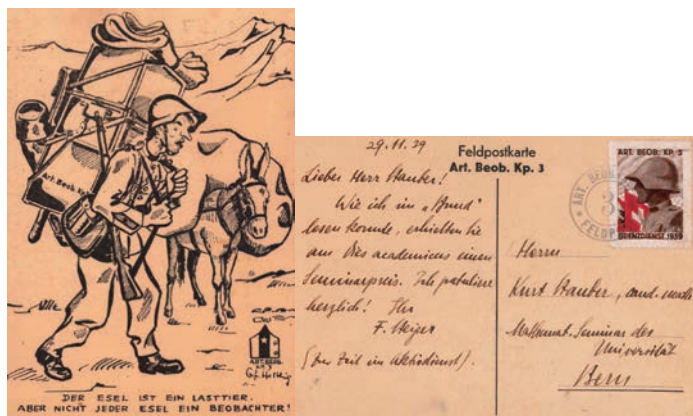 Art. Beob. Kp.
ART. BEOB.
DER ESEL IST EIN LASTTIER.
ABER NICHT JEDER ESEL EIN BEOBACHTER!
29.11.39
Feldpostkarte
Art. Beob. Kp. 3
Lieber Herr Stauber!
Wie ich im „Bund"
lesen konnte, erhielten Sie
am Dies academicus einen
Seminarpreis. Ich gratuliere
herzlich! Ihr
F. Steiger
(zur Zeit im Aktivdienst).
ART. BEOB. KP. 3
GRENZDIENST 1939
ART. BEOB.
3
FELDP
Herrn
Kurt Stauber, cand. math
Mathemat. Seminar der
Universität
Bern